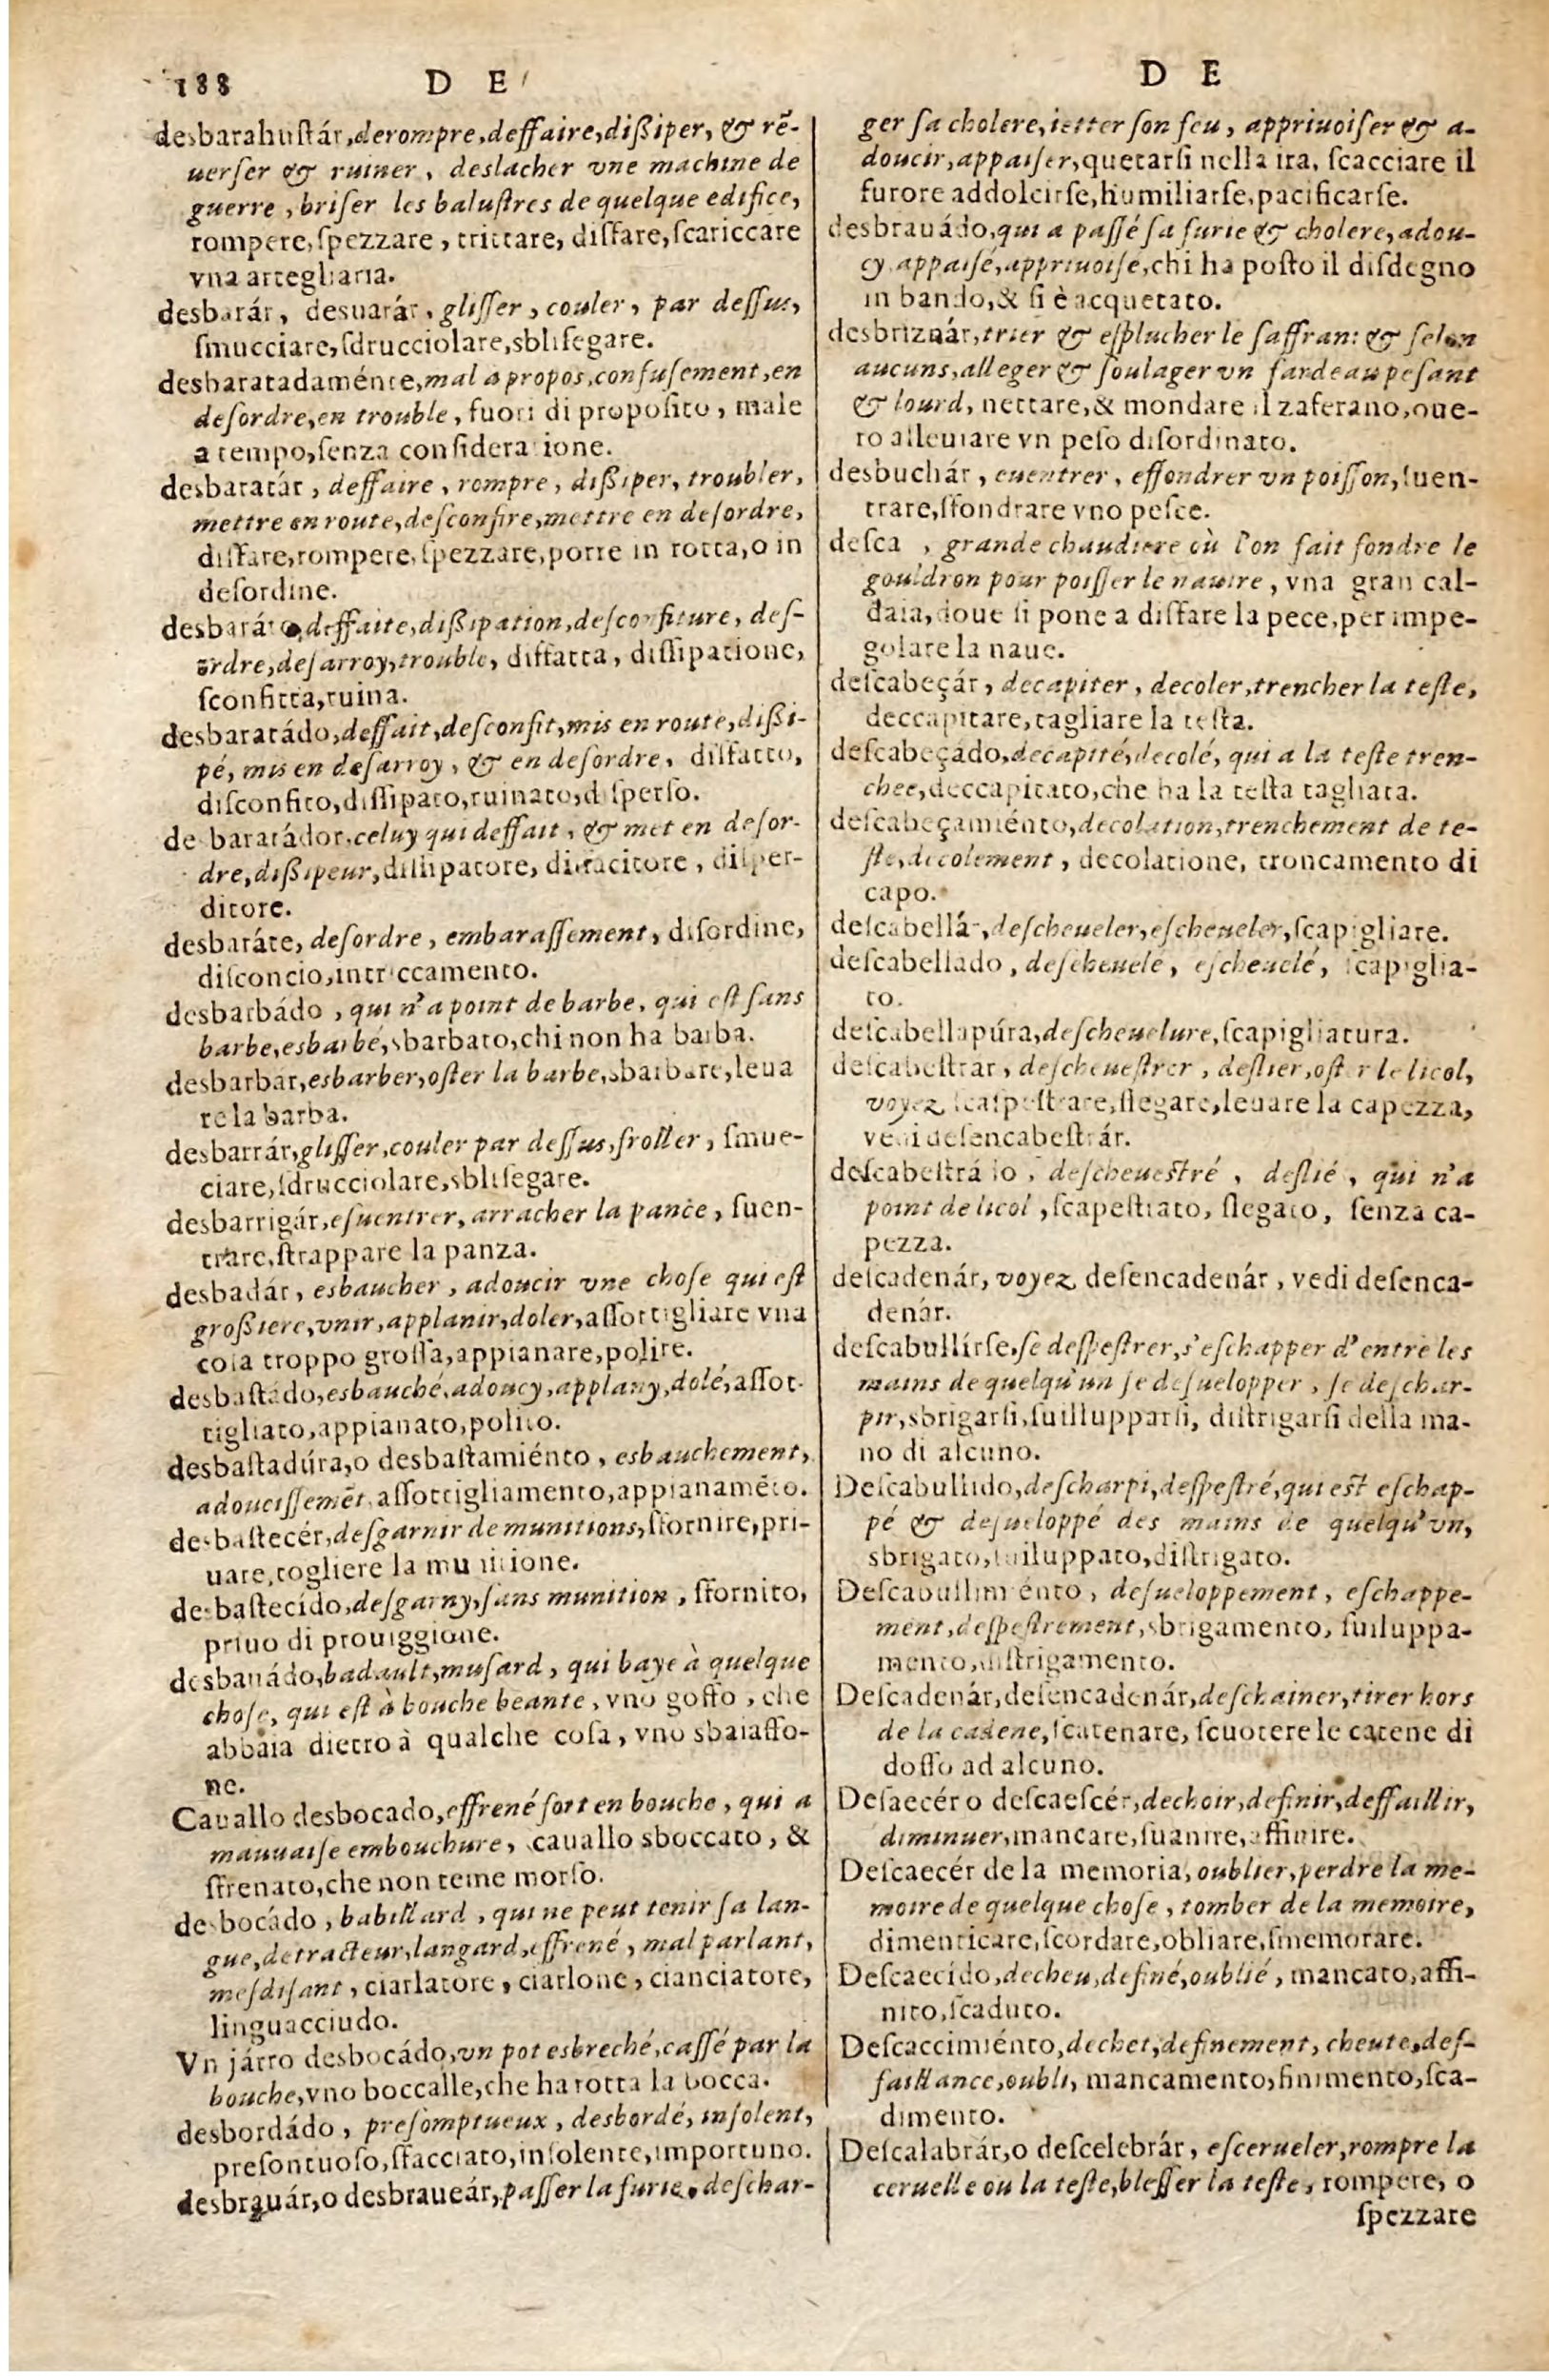 188 D E
D E
desbarahuſtár, derompre, deffaire, diſsiper, & rẽ-
uerſer & ruiner, deslacher vne machine de
guerre, briſer les baluſtres de quelque edifice,
rompere, ſpezzare, trittare, diſfare, ſcariccare
vna artegliaria.
desbarár, desuarár, gliſſer, couler, par deſſus,
ſmucciare, ſdrucciolare, sbliſegare.
desbaratadaménte, mal a propos, confuſement, en
deſordre, en trouble, fuori di propoſito, male
a tempo, ſenza conſideratione.
desbaratár, deffaire, rompre, diſsiper, troubler,
mettre en route, deſconfire, mettre en deſordre,
diſfare, rompere, ſpezzare, porre in rotta, o in
deſordine.
desbaráto, deffaite, diſsipation, deſconfiture, deſ-
ordre, deſarroy, trouble, diſfatta, diſſipatione,
ſconfitta, ruina.
desbaratádo, deffait, deſconfit, mis en route, diſsi-
pé, mis en deſarroy, & en deſordre, diſfatto,
diſconfito, diſſipato, ruinato, diſperſo.
desbaratádor, celuy qui deffait, & met en deſor-
dre, diſsipeur, diſſipatore, disfacitore, diſper-
ditore.
desbaráte, deſordre, embaraſſement, diſordine,
diſconcio, intriccamento.
desbarbádo, qui n'a point de barbe, qui eſt ſans
barbe, esbarbé, sbarbato, chi non ha barba.
desbarbar, esbarber, oſter la barbe, sbarbare, leua
re la barba.
desbarrár, gliſſer, couler par deſſus, froller, ſmue-
ciare, ſdrucciolare, sbliſegare.
desbarrigár, eſuentrer, arracher la pance, ſuen-
trare, ſtrappare la panza.
desbadár, esbaucher, adoucir vne choſe qui eſt
groſsiere, vnir, applanir, doler, aſſottigliare vna
coſa troppo groſſa, appianare, polire.
desbaſtádo, esbauché, adoucy, applany, dolé, aſſot-
tigliato, appianato, polito.
desbaſtadúra, o desbaſtamiénto, esbauchement,
adouciſſemẽt, aſſottigliamento, appianamẽto.
desbaſtecér, deſgarnir de munitions, sfornire, pri-
uare, togliere la munitione.
desbaſtecído, deſgarny, ſans munition, sfornito,
priuo di prouiggione.
desbauádo, badault, muſard, qui baye à quelque
choſe, qui eſt à bouche beante, vno goffo, che
abbaia dietro à qualche coſa, vno sbaiaffo-
ne.
Cauallo desbocado, effrené fort en bouche, qui a
mauuaiſe embouchure, cauallo sboccato, &
sfrenato, che non teme morſo.
desbocádo, babillard, qui ne peut tenir ſa lan-
gue, detracteur, langard, effrené, mal parlant,
meſdiſant, ciarlatore, ciarlone, cianciatore,
linguacciudo.
Vn járro desbocádo, vn pot esbreché, caſſé par la
bouche, vno boccalle, che ha rotta la bocca.
desbordádo, preſomptueux, desbordé, inſolent,
preſontuoſo, sfacciato, inſolente, importuno.
desbrauár, o desbraueár, paſſer la furie, deſchar-
ger ſa cholere, ietter ſon feu, appriuoiſer & a-
doucir, appaiſer, quetarſi nella ira, ſcacciare il
furore addolcirſe, humiliarſe, pacificarſe.
desbrauádo, qui a paſſé ſa furie & cholere, adou-
cy, appaiſé, appriuoiſe, chi ha poſto il diſdegno
in bando, & ſi è acquetato.
desbriznár, trier & eſplucher le ſaffran: & ſelon
aucuns, alleger & ſoulager vn fardeau peſant
& lourd, nettare, & mondare il zaferano, oue-
ro alleuiare vn peſo diſordinato.
desbuchár, euentrer, effondrer vn poiſſon, ſuen-
trare, sfondrare vno peſce.
deſca, grande chaudiere où l'on fait fondre le
gouldron pour poiſſer le nauire, vna gran cal-
daia, doue ſi pone a disfare la pece, per impe-
golare la naue.
deſcabeçár, decapiter, decoler, trencher la teſte,
deccapitare, tagliare la teſta.
deſcabeçádo, decapité, decolé, qui a la teſte tren-
chee, deccapitato, che ha la teſta tagliata.
deſcabeçamiénto, decolation, trenchement de te-
ſte, decolement, decolatione, troncamento di
capo.
deſcabellár, deſcheueler, eſcheueler, ſcapigliare.
deſcabellado, deſcheuelé, eſcheuelé, ſcapiglia-
to.
deſcabellapúra, deſcheuelure, ſcapigliatura.
deſcabeſtrar, deſcheueſtrer, deſlier, oſter le licol,
voyez ſcapeſtrare, ſlegare, leuare la capezza,
vedi deſencabeſtrár.
deſcabeſtrádo, deſcheueſtré, deſlié, qui n'a
point de licol, ſcapeſtrato, ſlegato, ſenza ca-
pezza.
deſcadenár, voyez deſencadenár, vedi deſenca-
denár.
deſcabullírſe, ſe deſpeſtrer, s'eſchapper d'entre les
mains de quelqu'un ſe deſuelopper, ſe deſchar-
pir, sbrigarſi, ſuillupparſi, diſtrigarſi della ma-
no di alcuno.
Deſcabullido, deſcharpi, deſpeſtré, qui eſt eſchap-
pé & deſueloppé des mains de quelqu'vn,
sbrigato, ſuiluppato, diſtrigato.
Deſcabullimiénto, deſueloppement, eſchappe-
ment, deſpeſtrement, sbrigamento, ſuiluppa-
mento, diſtrigamento.
Deſcadenár, deſencadenár, deſchainer, tirer hors
de la cadene, ſcatenare, ſcuotere le catene di
doſſo ad alcuno.
Deſaecér o deſcaeſcér, dechoir, definir, deffaillir,
diminuer, mancare, ſuanire, affinire.
Deſcaecér de la memoria, oublier, perdre la me-
moire de quelque choſe, tomber de la memoire,
dimenticare, ſcordare, obliare, ſmemorare.
Deſcaecído, decheu, definé, oublié, mancato, affi-
nito, ſcaduto.
Deſcaccimiénto, dechet, definement, cheute, deſ-
faillance, oubli, mancamento, finimento, ſca-
dimento.
Deſcalabrár, o deſcelebrár, eſcerueler, rompre la
ceruelle ou la teſte, bleſſer la teſte, rompere, o
ſpezzare